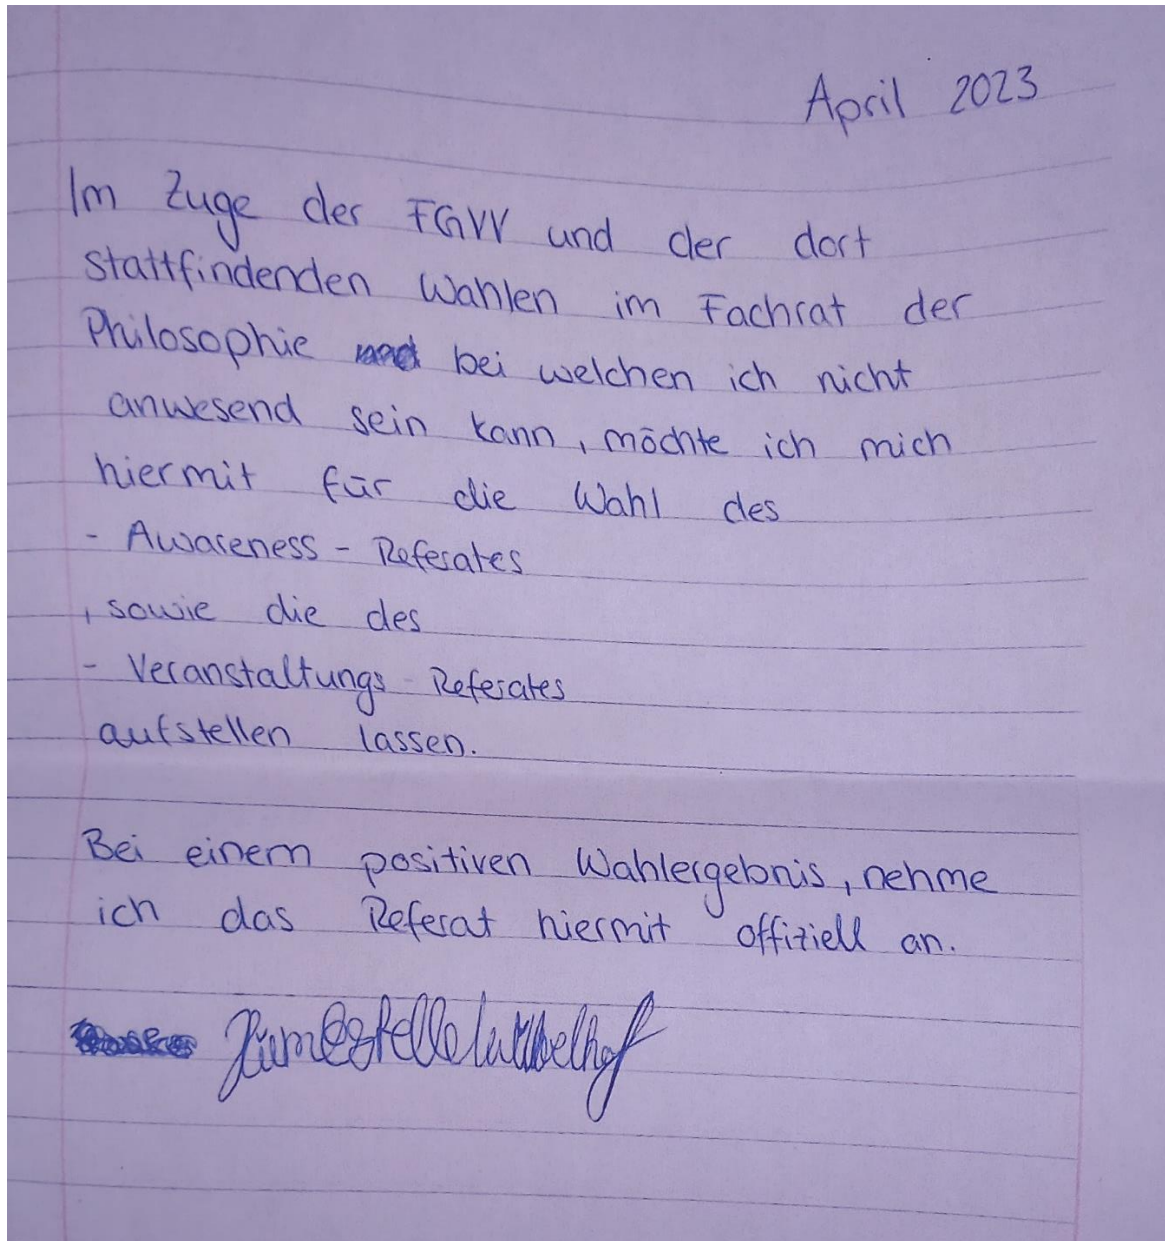 April 2023
Im Zuge der FGVV und der dort
stattfindenden Wahlen im Fachrat der
Philosophie bei welchen ich nicht
anwesend sein kann, möchte ich mich
hiermit für die Wahl des
- Awareness - Referates
, sowie die des
- Veranstaltungs - Referates
aufstellen lassen.
Bei einem positiven Wahlergebnis, nehme
ich das Referat hiermit offiziell an.